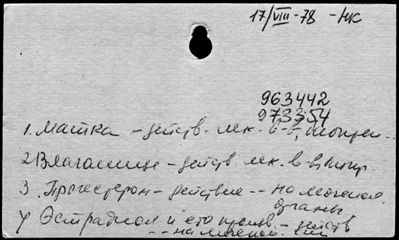 17/VIII-78 - НК
963442
973354
1. Матка - действ. лек. в-в,
2. Влагалище - действ. лек. в-в,
3. Прогестерон - действие -- на мочепол.
органы
4 Эстрадиол и его произв. - действ
-- на мочепол.